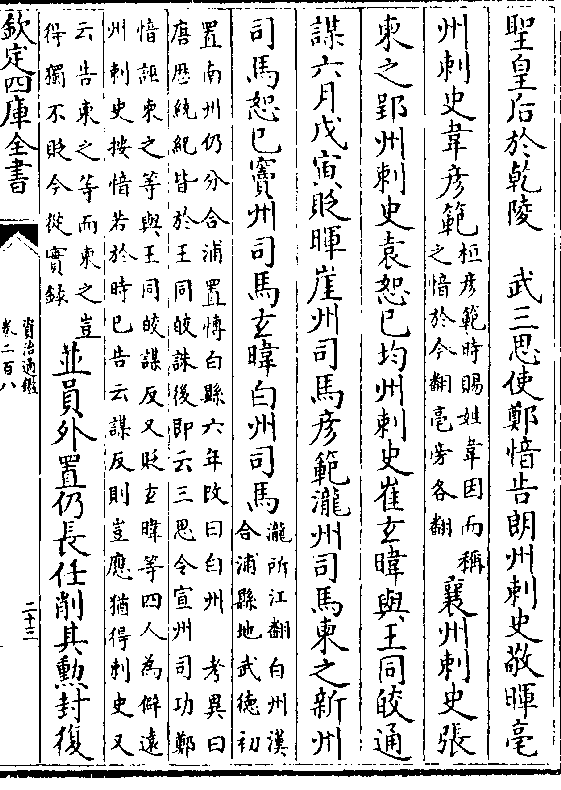 聖皇后於乾陵　武三思使鄭愔告朗州刺史敬暉亳
州刺史韋彦範桓彦範時賜姓韋因而稱
之愔於今翻亳旁各翻襄州刺史張
柬之郢州刺史袁恕己均州刺史崔玄暐與王同皎通
謀六月戊寅貶暉崖州司馬彦範瀧州司馬柬之新州
司馬恕己竇州司馬玄暐白州司馬瀧所江翻白州漢
合浦縣地武德初
置南州仍分合浦置愽白縣六年改曰白州　考異曰
唐歴統紀皆於王同皎誅後即云三思令宣州司功鄭
愔誣柬之等與王同皎謀反又貶玄暐等四人為僻逺
州刺史按愔若於時已告云謀反則豈應猶得刺史又
云告柬之等而柬之豈
得獨不貶今從實録並員外置仍長任削其勲封復
欽定四庫全書
資治通鑑
卷二百八
二十三